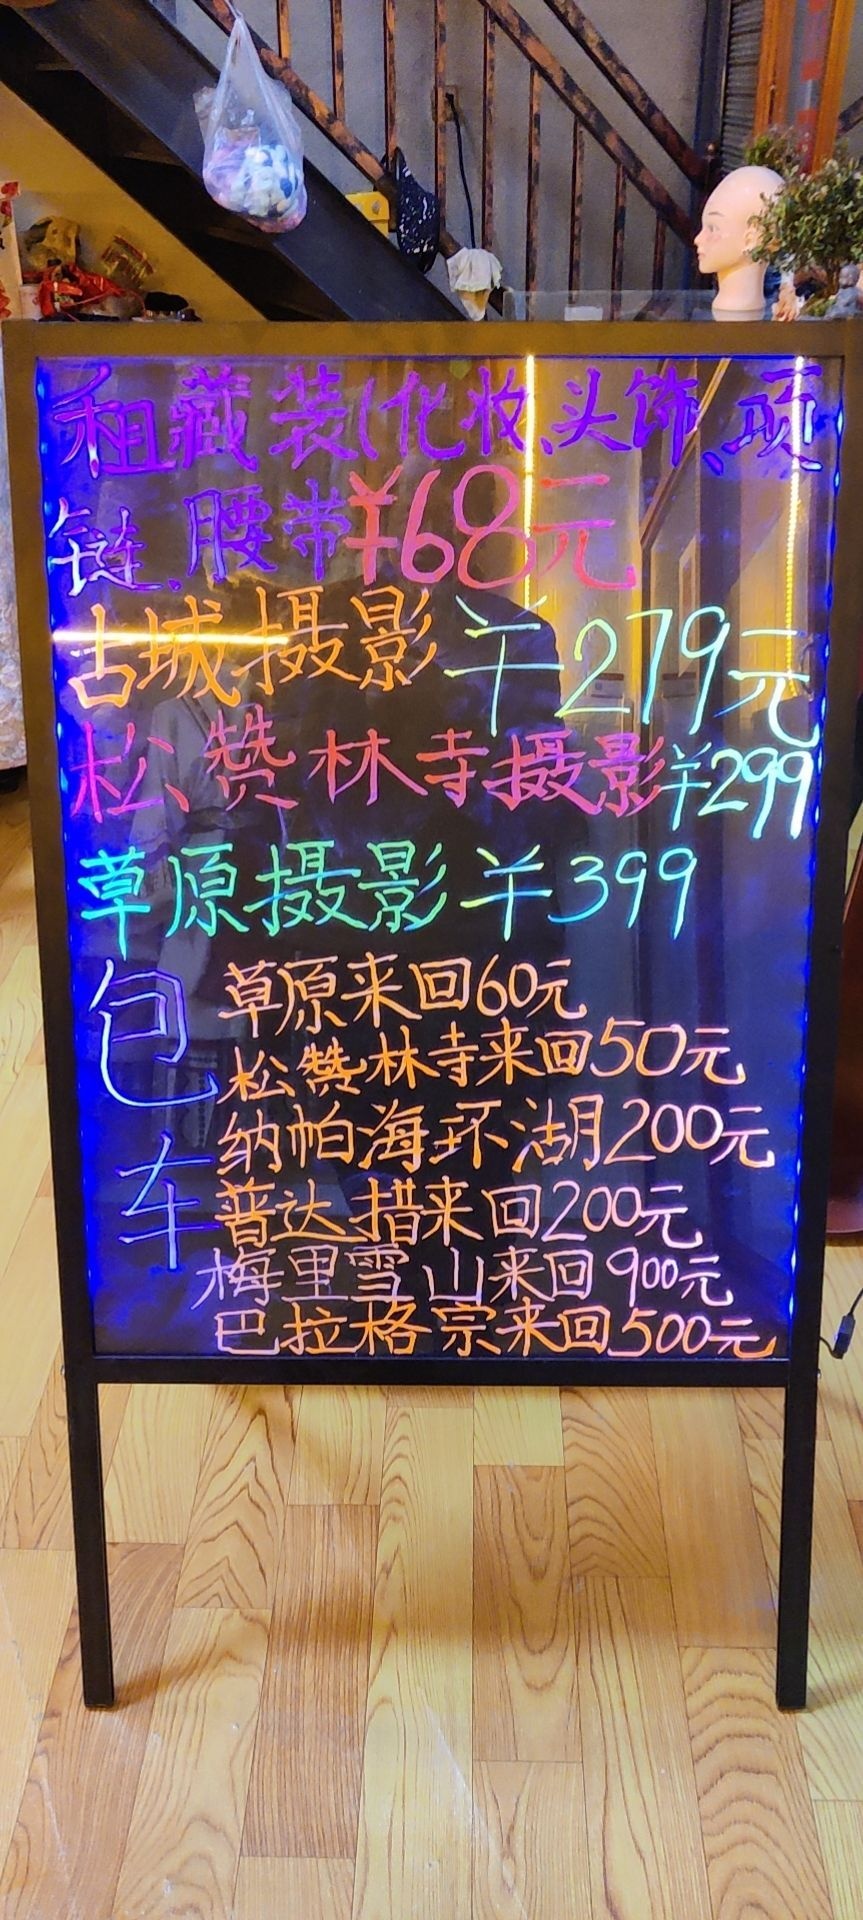 租藏装(化妆、头饰、项
链、腰带¥68元
古城摄影¥279元
松赞林寺摄影¥299
草原摄影¥399
包车
草原来回60元
松赞林寺来回50元
纳帕海环湖200元
普达措来回200元
梅里雪山来回900元
巴拉格宗来回500元